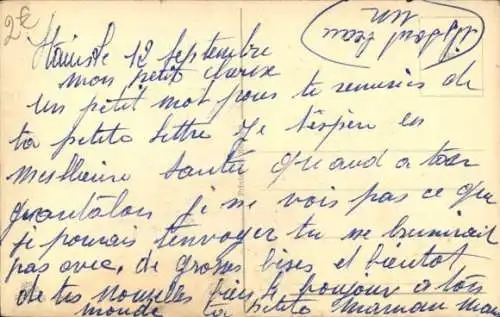 2€
12 Septembre
mon petit
un petit mot pour te remercier de
ta petite lettre Je t'espère en
meilleure santé quand a ton
pantalon je ne vois pas ce que
je pourais t'envoyer tu me
pas avec. de grosses bises et bientot
de tes nouvelles bien le bonjour a tout
monde ta petite maman